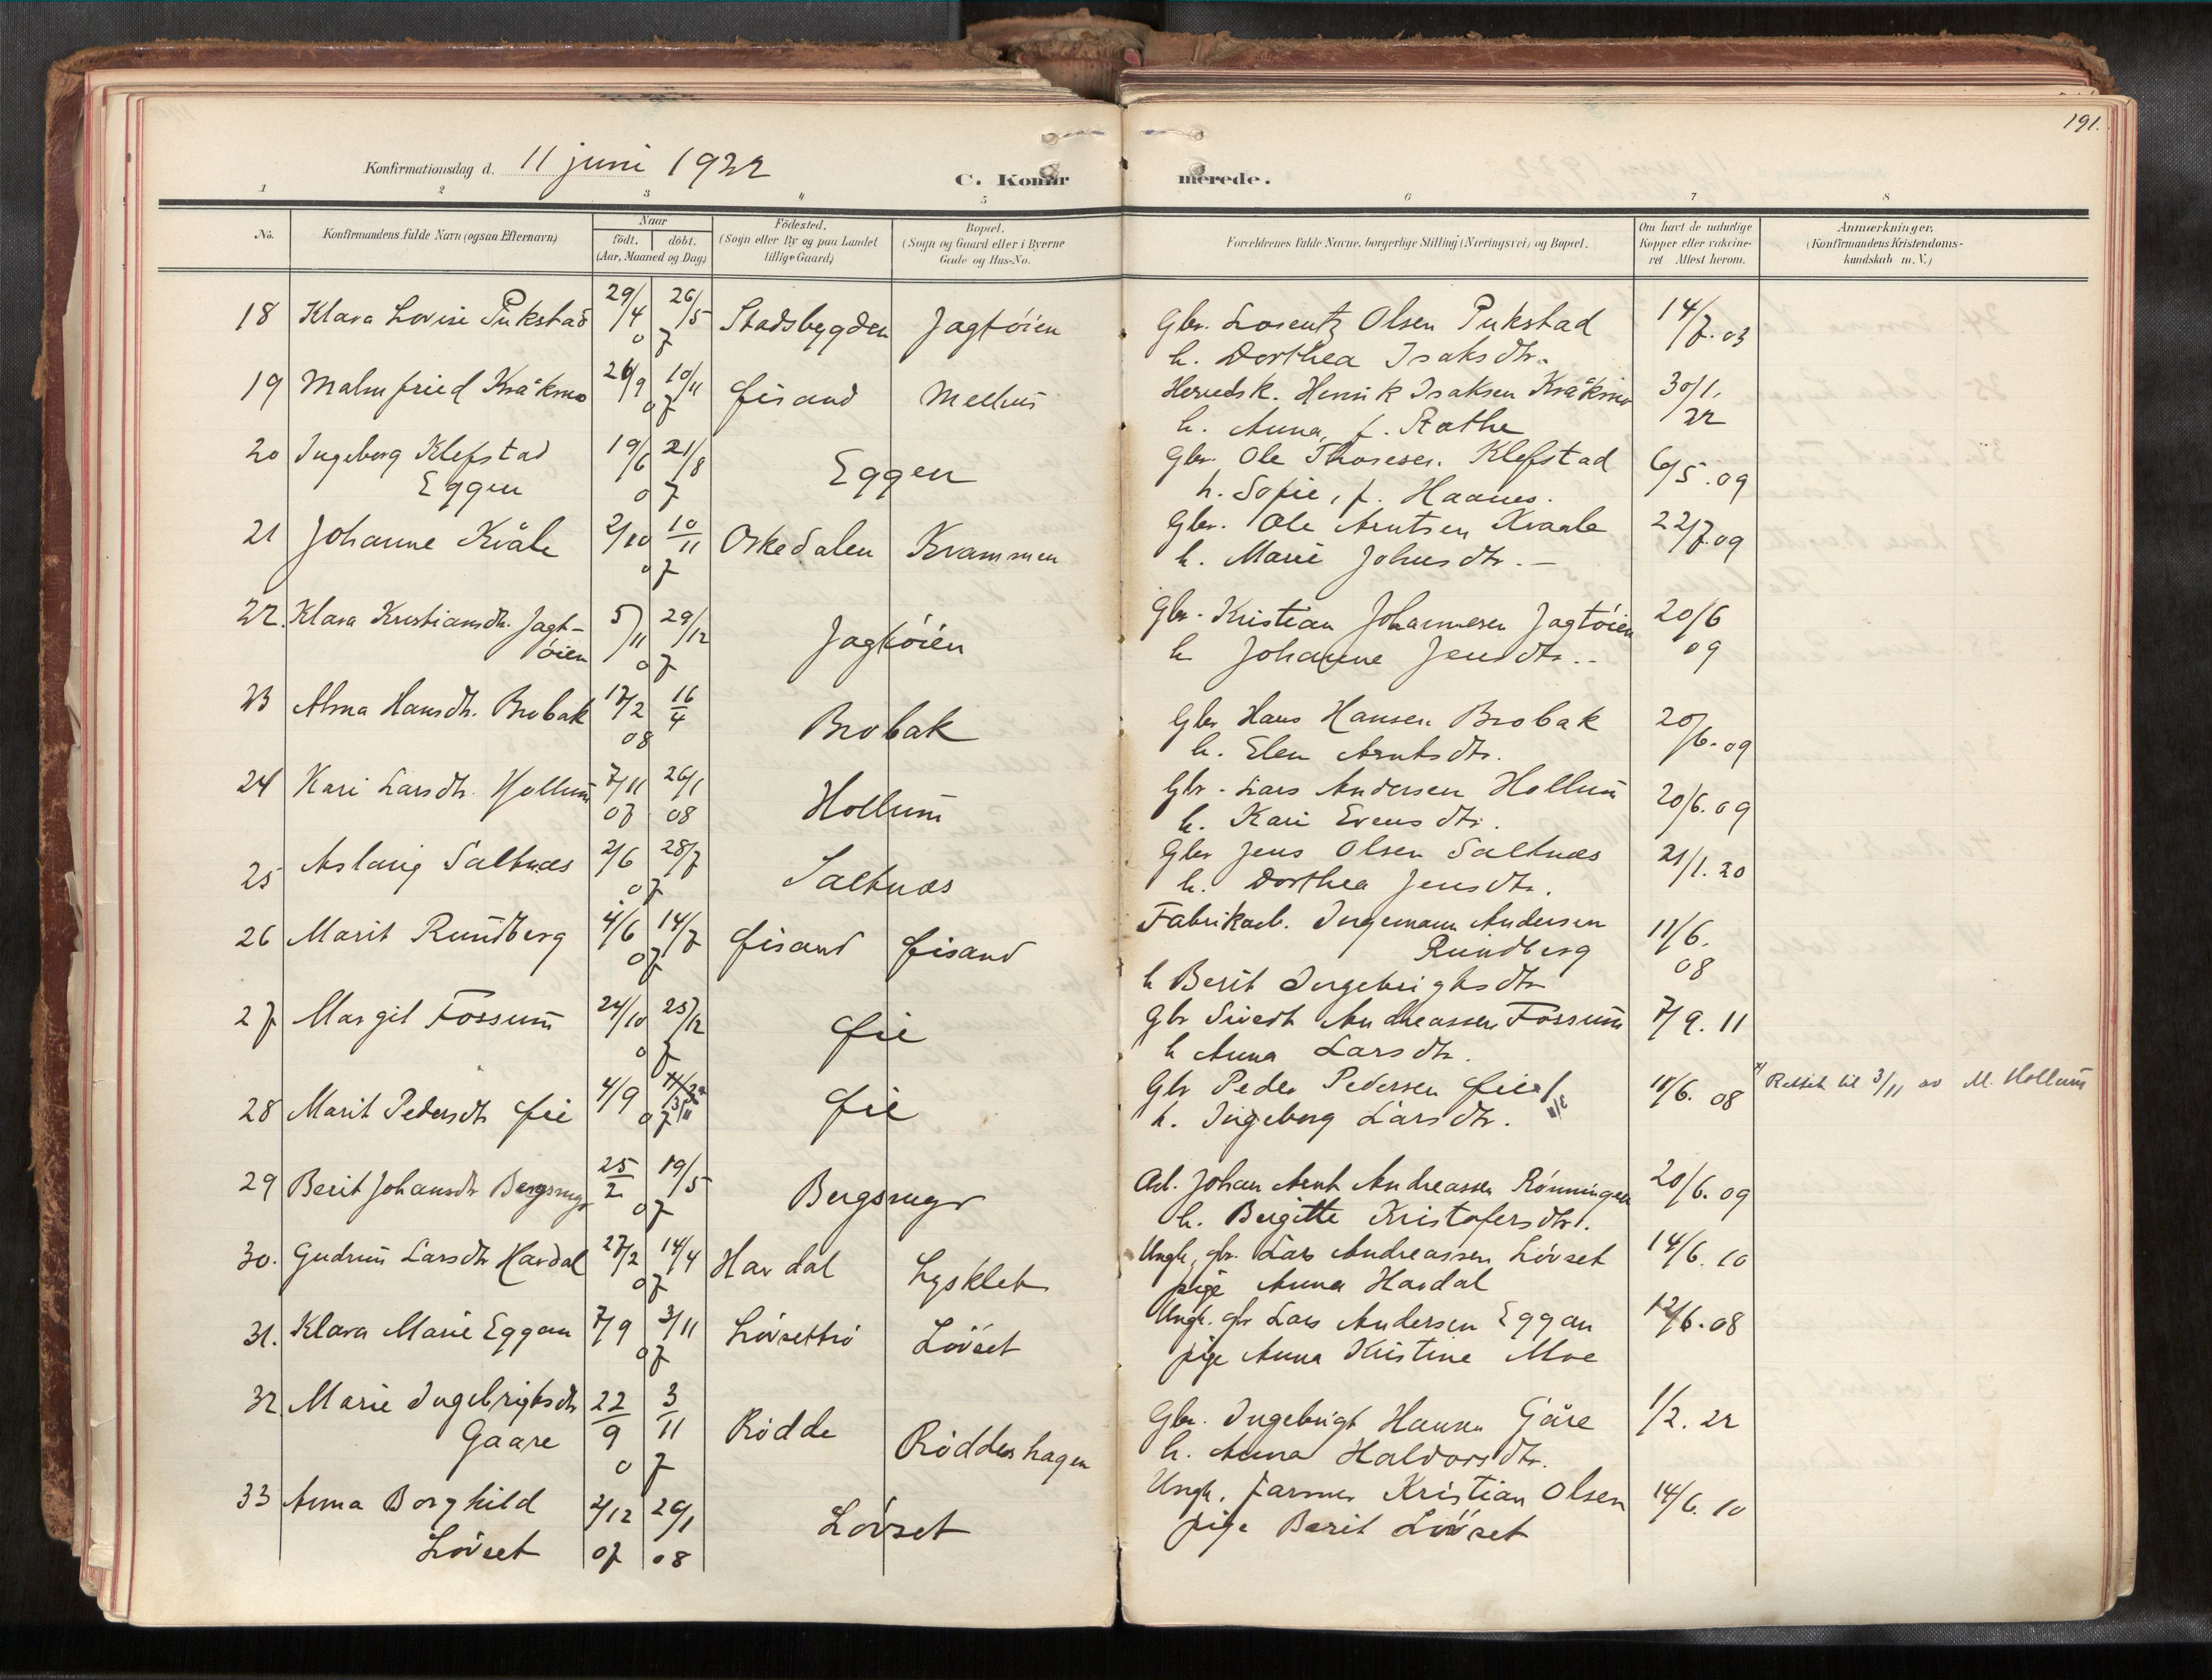 191.
Konfirmationsdag d. 11 juni 1922
C. Konfirmerede.
1 2 3 4 5 6 7 8
No. Konfirmandens fulde Navn (ogsaa Efternavn) Naar födt. döbt. (Aar, Maaned og Dag) Födested. (Sogn eller By og paa Landet tillige Gaard) Bopæl. (Sogn og Gaard eller i Byerne Gade og Hus-No. Forældrenes fulde Navne, borgerlige Stilling (Næringsvei) og Bopæl. Om havt de naturlige Kopper eller vaccineret Attest herom. Anmærkninger. (Konfirmandens Kristendomskundskab m. V.)
18 Klara Lovise Pukstad 29/4 26/5 07 Stadsbygden Jagtöien Gbr. Lorentz Olsen Pukstad 14/7.03
h. Dorthea Isaksdtr.
19 Malmfried Kråkmo 26/9 10/11 07 Öisand Melhus Heredsk. Henrik Isaksen Kråkmo 30/1.22
h. Anna, f. Rathe
20 Ingeborg Klefstad 19/6 21/8 07 Eggen Gbr. Ole Thoresen Klefstad 6/5.09
Eggen h. Sofie, f. Haanes.
21 Johanne Kvåle 2/10 10/11 07 Oskedalen Kvammen Gbr. Ole Arntsen Kvaale 22/7.09
h. Marie Johnsdtr. —
22. Klara Kristiansdtr. Jagt- 5/11 29/12 07 Jagtöien Gbr. Kristian Johannesen Jagtöien 20/6 09
öien h Johanne Jensdtr.
23 Alma Hansdtr. Brobak 17/2 16/4 08 Brobak Gbr Hans Hansen Brobak 20/6.09
h. Elen Arntsdtr.
24 Kari Larsdtr. Hollum 7/11 07 26/1 08 Hollum Gbr. Lars Andersen Hollum 20/6.09
h. Kari Evensdtr.
25 Aslaug Saltnæs 2/6 28/7 07 Saltnæs Gbr Jens Olsen Saltnæs 21/1.20
h. Dorthea Jensdtr.
26 Marit Rundberg 4/6 14/7 07 Öisand Öisand Fabrikarb. Ingemann Andersen 11/6.08
Rundberg
h Berit Ingebrigtsdtr
27 Margit Fossum 24/10 25/12 07 Öie Gbr Sivert Andreassen Fossum 7/9.11
h Anna Larsdtr.
28 Marit Pedersdtr Öie 4/9 3/11 07 Öie Gbr Peder Pedersen Öie 11/6.08 x) Rettet til 3/11 av M. Hollum
h. Ingeborg Larsdtr.
29 Berit Johansdtr Bergsrugs 25/2 19/5 07 Bergsrugs Arb. Johan Arnt Andreassen Rönningen 20/6.09
h. Birgitte Kristofersdtr.
30. Gudrun Larsdtr Hardal 27/2 14/4 07 Hardal Lysklet Ungk, gbr. Lars Andreassen Lövset 14/6.10
pige Anna Hardal
31. Klara Marie Eggan 7/9 3/11 07 Lövsettrö Lövset Ungk. gbr Lars Andersen Eggan 12/6.08
pige Anna Kristine Moe
32. Marie Ingebrigtsdtr 22/9 3/11 07 Rödde Röddeshagen Gbr. Ingebrigt Hansen Gåre 1/2.22
Gaare h. Anna Haldorsdtr.
33 Anna Borghild 2/12 07 26/1 08 Lövset Ungk. farmer Kristian Olsen 14/6.10
Lövset pige Berit Lövset